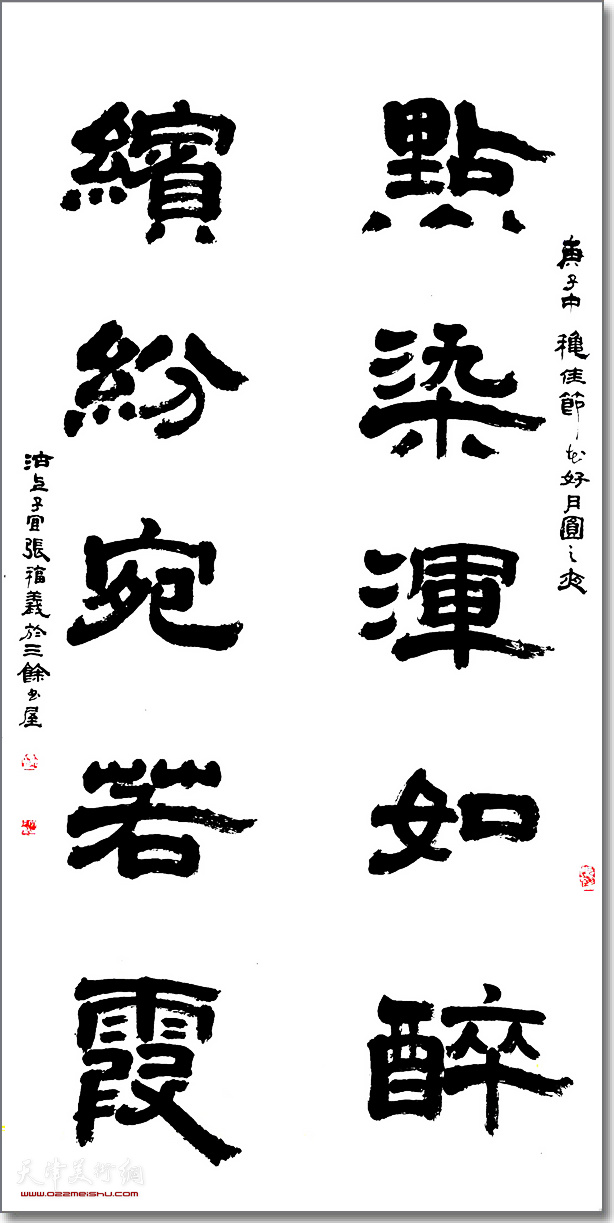 庚子中穐佳節花好月圓之夜
點染渾如醉
繽紛宛若霞
沽上子宜張福義於三餘書屋
天津美术网
www.022meishu.com